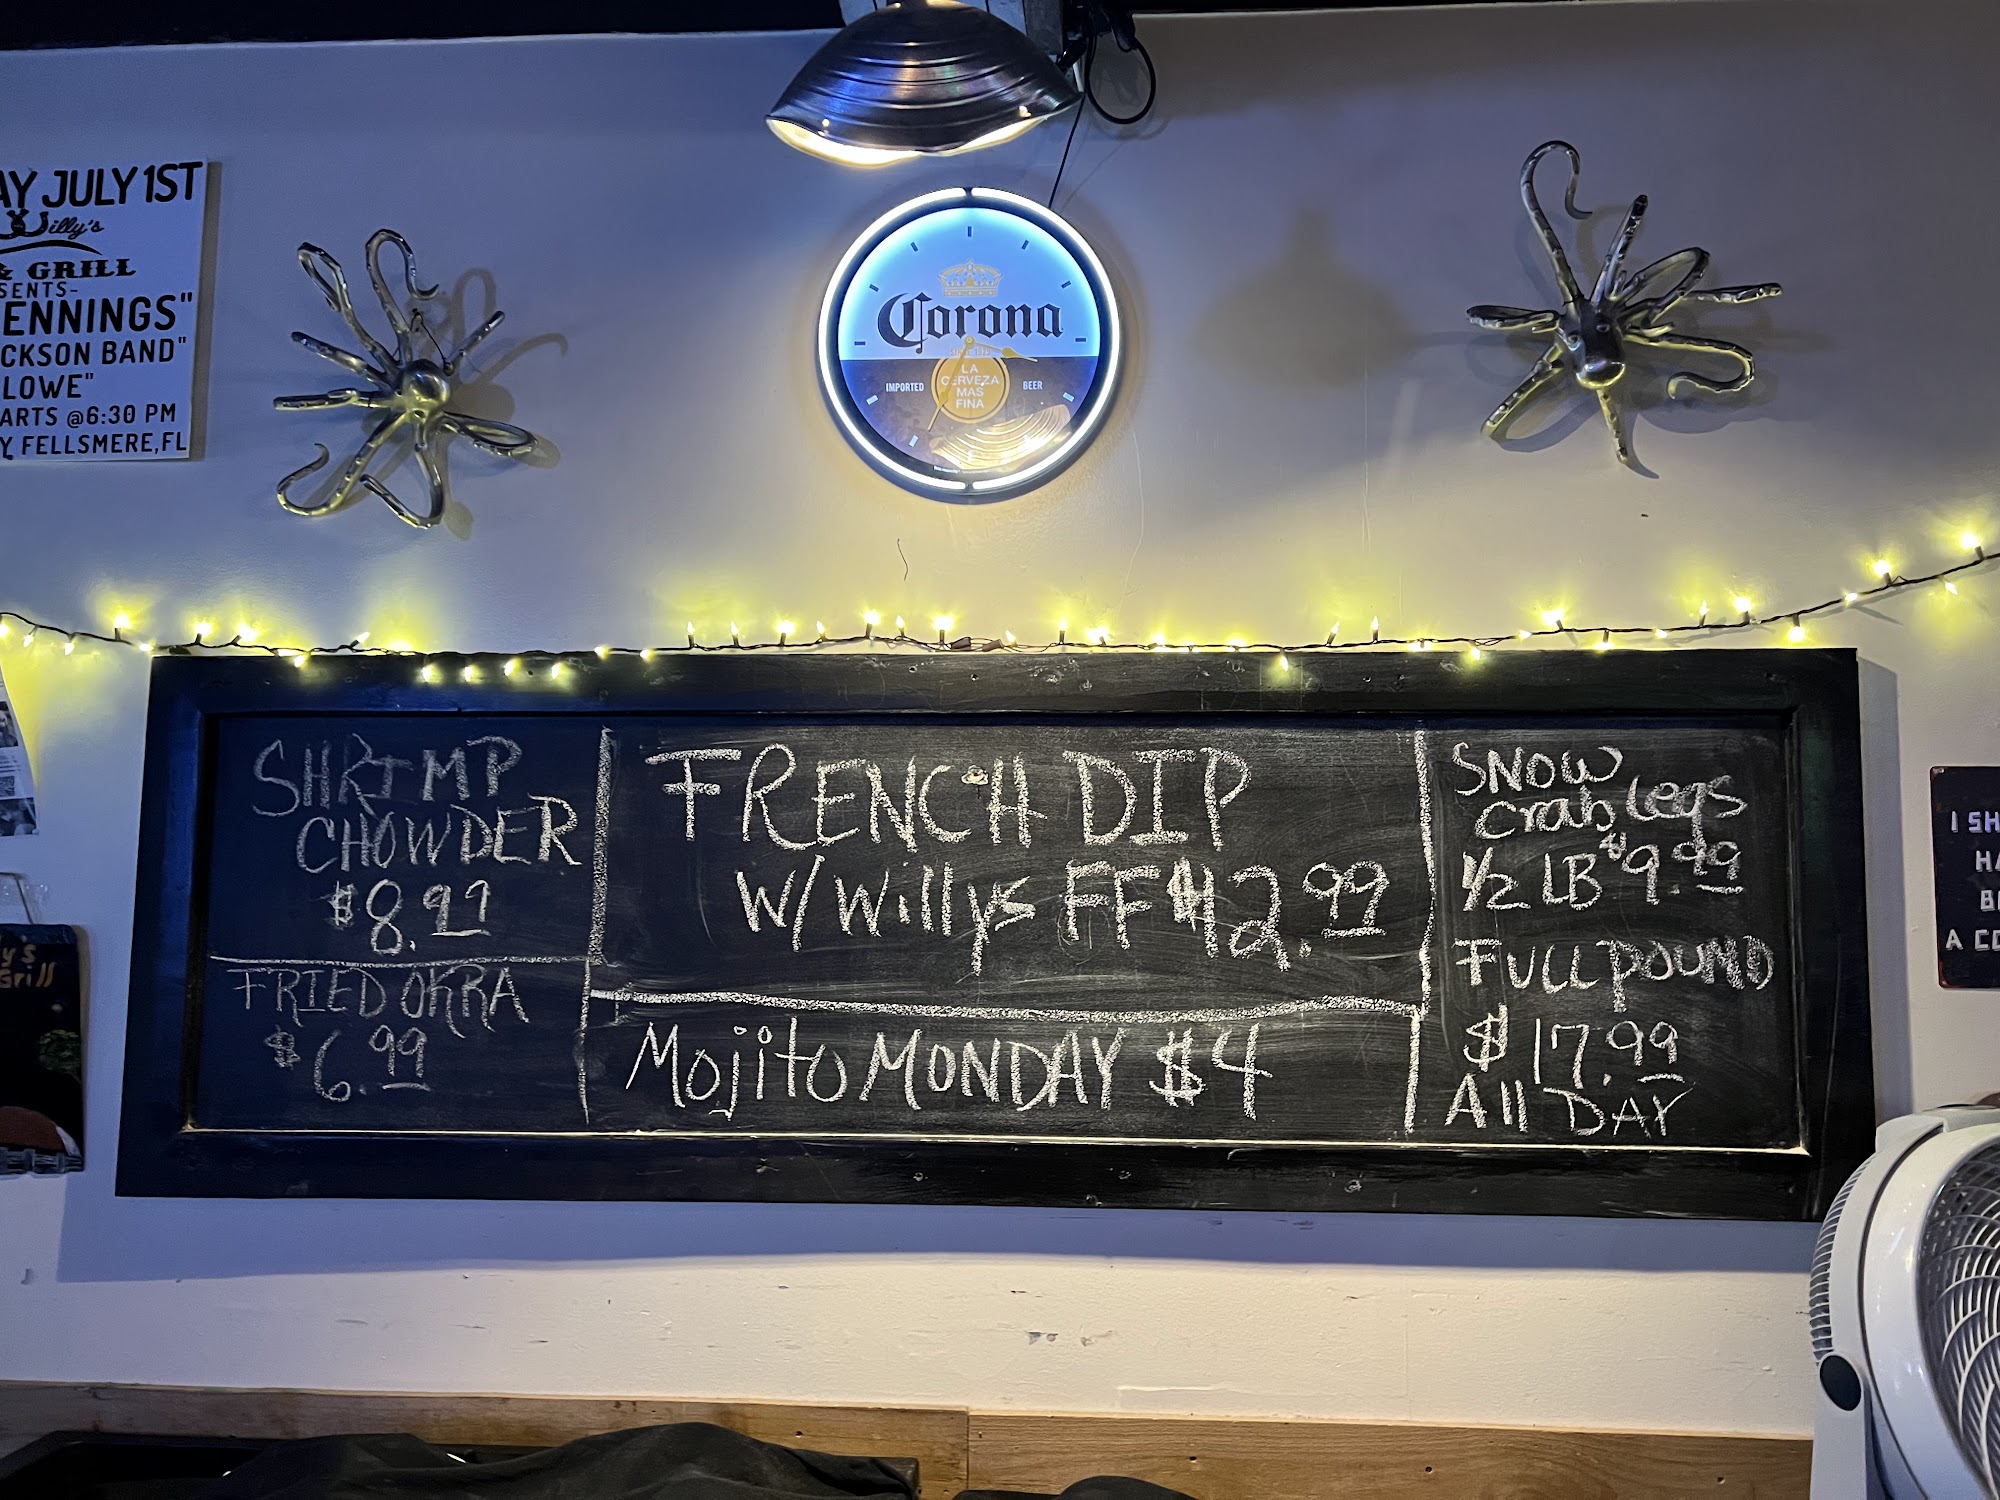 AY JULY 1ST
Willy's
& GRILL
SENTS-
ENNINGS"
CKSON BAND"
LOWE"
ARTS @6:30 PM
Y, FELLSMERE, FL
Corona
LA
CERVEZA
MAS
FINA
IMPORTED
BEER
SHRIMP
CHOWDER
$8.99
FRIED OKRA
$6.99
FRENCH DIP
W/Willys FF $12.99
Mojito MONDAY $4
SNOW
Crab Legs
1/2 LB $9.99
FULL POUND
$17.99
All DAY
y's
Grill
I SH
HA
B
A CO